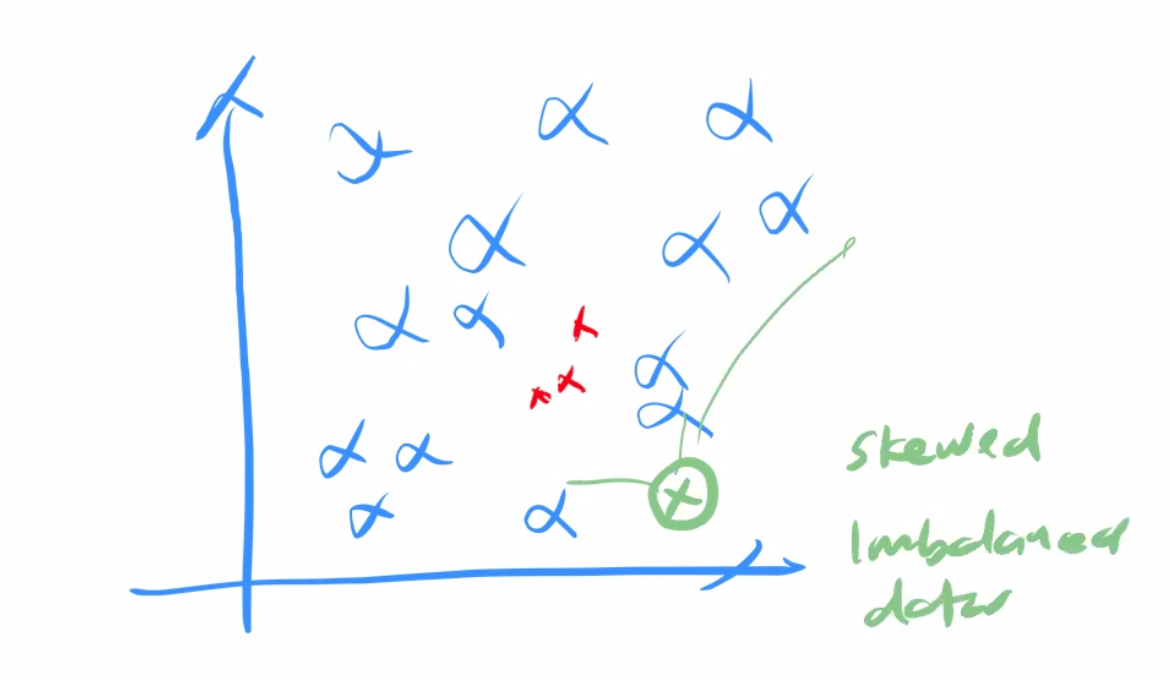 skewed
Imbalanced
data